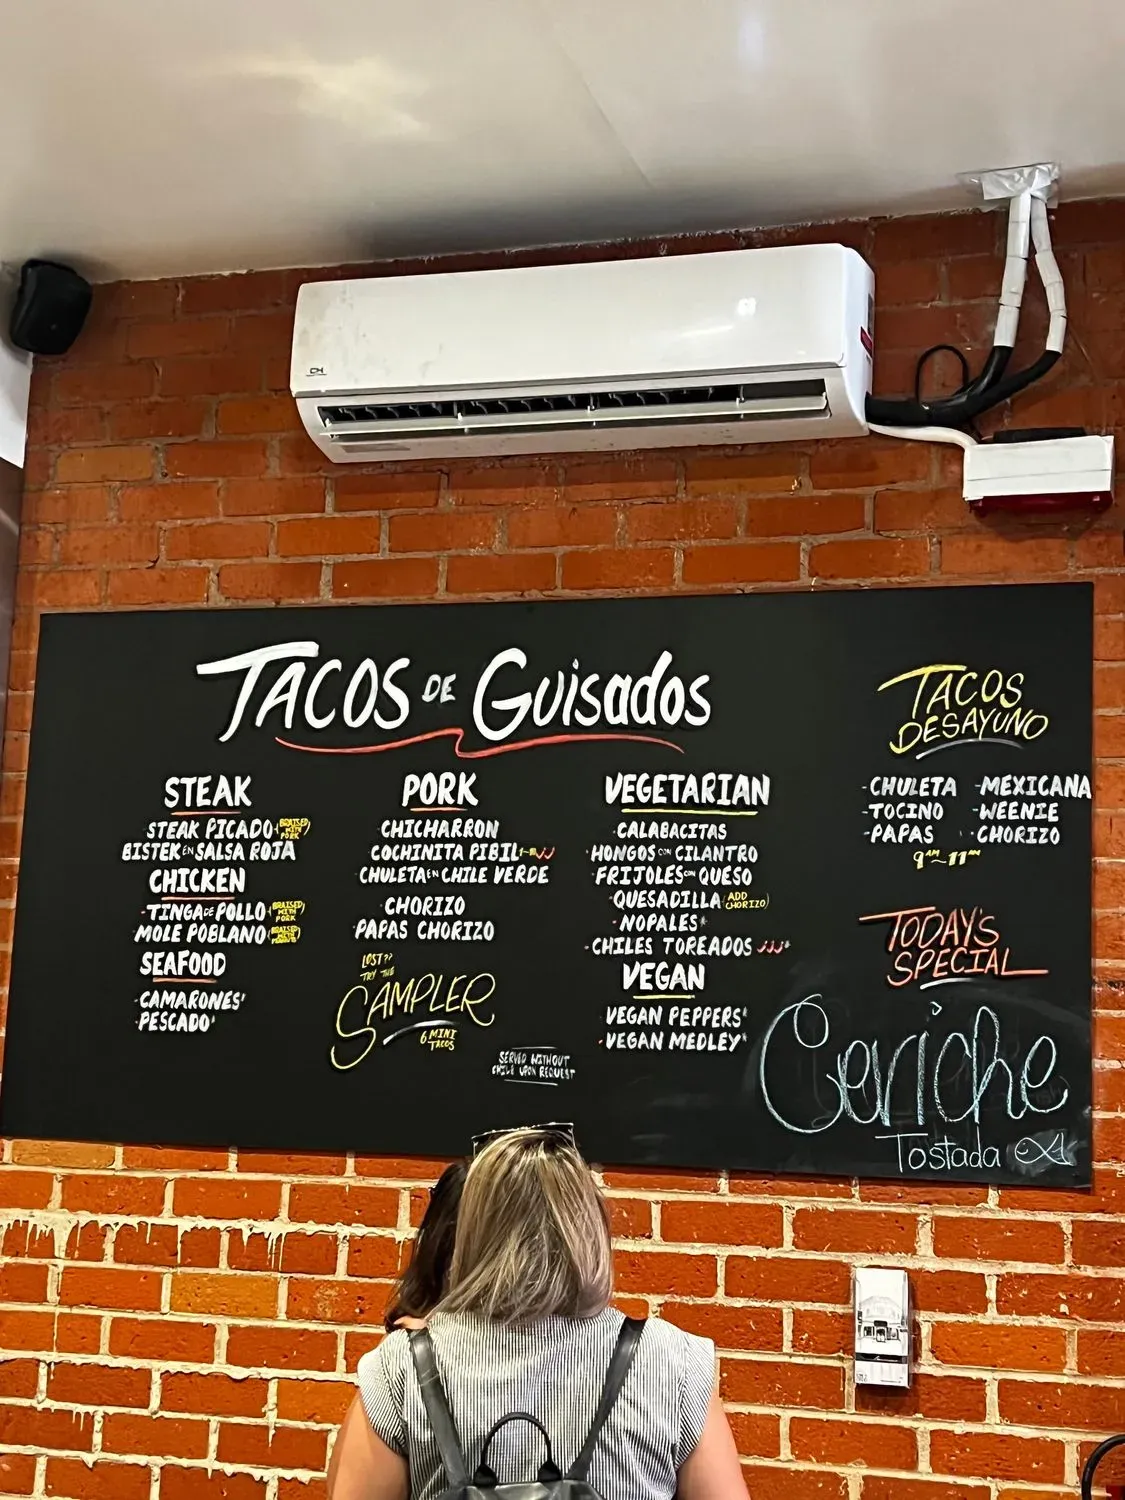 TACOS DE GUISADOS
STEAK
-STEAK PICADO (BRAISED WITH PORK)
BISTEK EN SALSA ROJA
CHICKEN
-TINGA DE POLLO (BRAISED WITH PORK)
MOLE POBLANO (BRAISED WITH
SEAFOOD
-CAMARONES*
-PESCADO*
PORK
-CHICHARRON
-COCHINITA PIBIL
-CHULETA EN CHILE VERDE
-CHORIZO
-PAPAS CHORIZO
LOST??
TRY THE
SAMPLER
6 MINI
TACOS
SERVED WITHOUT
CHILE UPON REQUEST
VEGETARIAN
-CALABACITAS
-HONGOS CON CILANTRO
-FRIJOLES CON QUESO
-QUESADILLA (ADD CHORIZO)
-NOPALES*
-CHILES TOREADOS *
VEGAN
-VEGAN PEPPERS*
-VEGAN MEDLEY*
TACOS
DESAYUNO
-CHULETA -MEXICANA
-TOCINO -WEENIE
-PAPAS -CHORIZO
9AM~11AM
TODAY'S
SPECIAL
Ceviche
Tostada